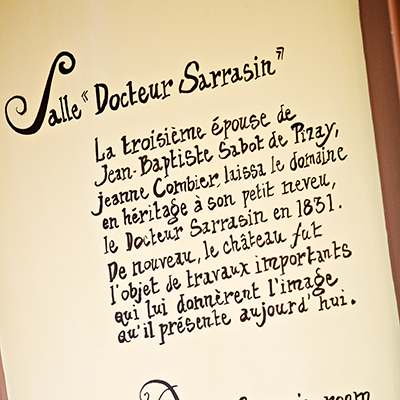 Salle "Docteur Sarrasin"
La troisième épouse de
Jean-Baptiste Sabot de Pizay,
Jeanne Combier, laissa le domaine
en héritage à son petit neveu,
le Docteur Sarrasin en 1831.
De nouveau, le château fut
l'objet de travaux importants
qui lui donnèrent l'image
qu'il présente aujourd'hui.
room